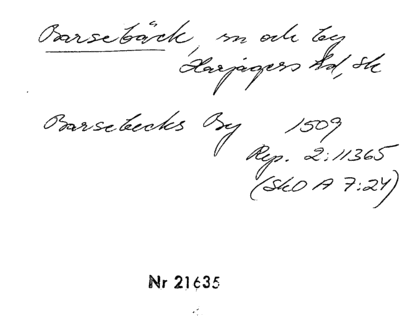 Barsebäck, sn och by
Harjagers hd, sk
Barsebecks By 1509
Rep. 2:11365
(SkO A 7:24)
Nr 21635